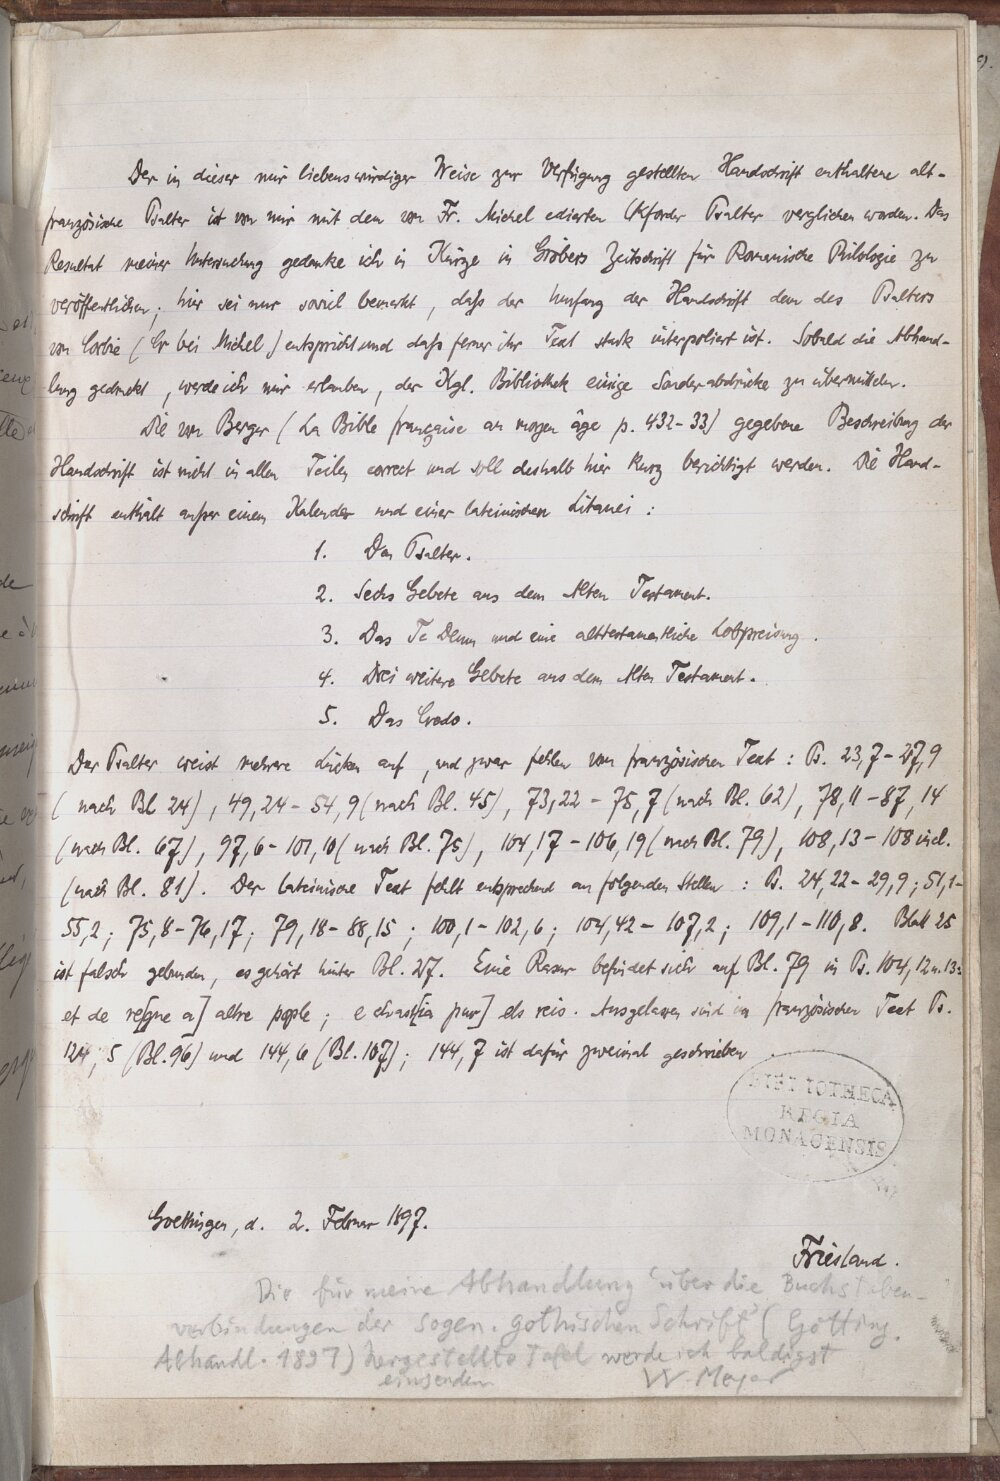 Der in dieser mir liebenswürdiger Weise zur Verfügung gestellten Handschrift enthaltene alt-
französische Psalter ist von mir mit dem von Fr. Michel edierten Oxforder Psalter verglichen worden. Das
Resultat meiner Untersuchung gedenke ich in Kürze in Gröbers Zeitschrift für Romanische Philologie zu
veröffentlichen; hier sei nur soviel bemerkt, daſs der Umfang der Handschrift dem des Psalters
von Corbie (Cr bei Michel) entspricht und daſs ferner ihr Text stark interpoliert ist. Sobald die Abhand-
lung gedruckt, werde ich mir erlauben, der Kgl. Bibliothek einige Sonderabdrücke zu übermitteln.
Die von Berger (La Bible française au moyen âge p. 432-33) gegebene Beschreibung der
Handschrift ist nicht in allen Teilen correct und soll deshalb hier kurz berichtigt werden. Die Hand-
schrift enthält auſser einem Kalender und einer lateinischen Litanei:
1. Den Psalter.
2. Sechs Gebete aus dem Alten Testament.
3. Das Te Deum und eine alttestamentliche Lobpreisung.
4. Drei weitere Gebete aus dem Alten Testament.
5. Das Credo.
Der Psalter weist mehrere Lücken auf, und zwar fehlen vom französischen Text: Ps. 23,7-27,9
(nach Bl 24), 49,24-54,9 (nach Bl. 45), 73,22-75,7 (nach Bl. 62), 78,11-87,14
(nach Bl. 67), 97,6-101,10 (nach Bl. 75), 104,17-106,19 (nach Bl. 79), 108,13-108 incl.
(nach Bl. 81). Der lateinische Text fehlt entsprechend an folgenden Stellen: Ps. 24,22-29,9; 51,1-
55,2; 75,8-76,17; 79,18-88,15; 100,1-102,6; 104,42-107,2; 109,1-110,8. Blatt 25
ist falsch gebunden, es gehört hinter Bl. 27. Eine Rasur befindet sich auf Bl. 79 in Ps. 104,12 u. 13:
et de re[gne a] altre pople; e chast[ia pur] els reis. Ausgelassen sind im französischen Text Ps.
124,5 (Bl. 96) und 144,6 (Bl. 107); 144,7 ist dafür zweimal geschrieben
BIBLIOTHECA
REGIA
MONACENSIS
Goettingen, d. 2. Februar 1897.
Friesland.
Die für meine Abhandlung über die Buchstaben-
verbindungen der sogen. gothischen Schrift (Götting.
Abhandl. 1897) hergestellte Tafel werde ich baldigst
einsenden
W. Meyer